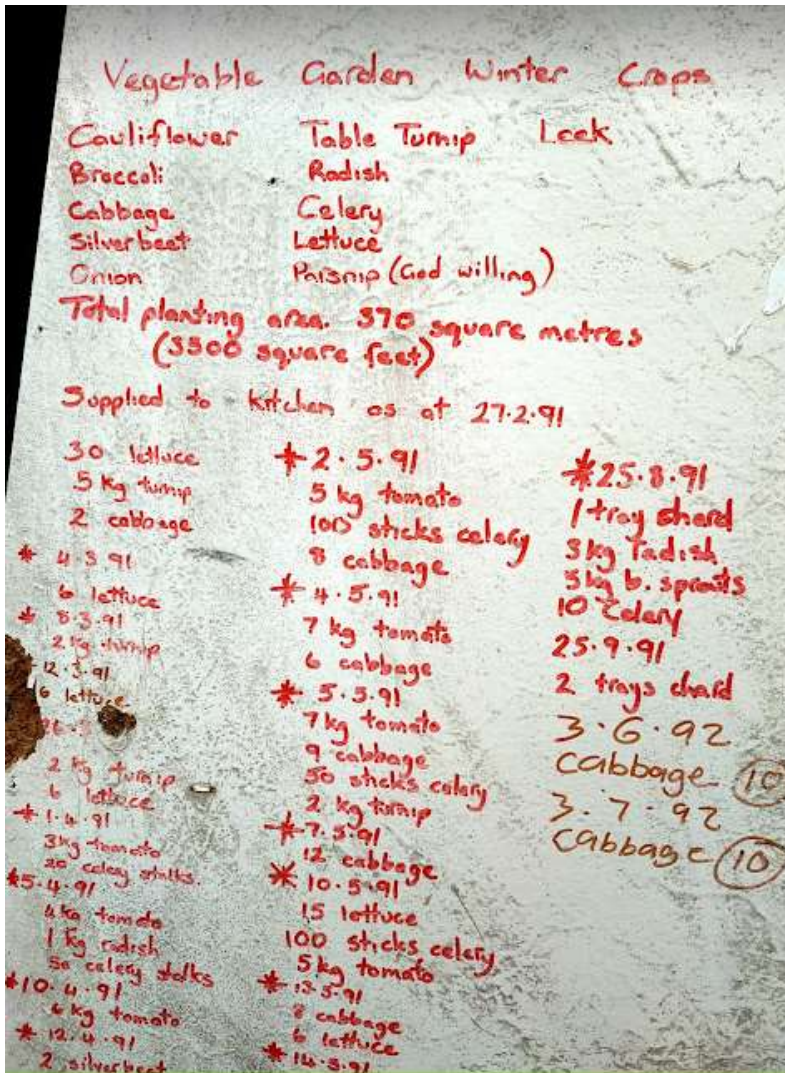 Vegetable Garden Winter Crops
Cauliflower Table Turnip Leek
Broccoli Radish
Cabbage Celery
Silverbeet Lettuce
Onion Parsnip (God willing)
Total planting area. 370 square metres
(3300 square feet)
Supplied to kitchen as at 27.2.91
30 lettuce
5 kg turnip
2 cabbage
* 4.3.91
6 lettuce
* 8.3.91
2 kg turnip
12.3.91
6 lettuce
2 kg turnip
6 lettuce
* 1.4.91
3kg tomato
20 celery stalks.
*5.4.91
4kg tomato
1 kg radish
50 celery stalks
*10.4.91
6 kg tomato
* 12.4.91
2 silverbeet
* 2.5.91
5 kg tomato
sticks celery
8 cabbage
* 4.5.91
7 kg tomato
6 cabbage
* 5.5.91
7kg tomato
9 cabbage
50 sticks celery
2 kg turnip
* 7.5.91
12 cabbage
* 10.5.91
15 lettuce
100 sticks celery
5kg tomato
* 13.5.91
8 cabbage
6 lettuce
* 14.5.91
*25.8.91
1 tray chard
3kg radish
5kg b. sprouts
10 celery
25.9.91
2 trays chard
3.6.92
cabbage 10
3.7.92
cabbage 10